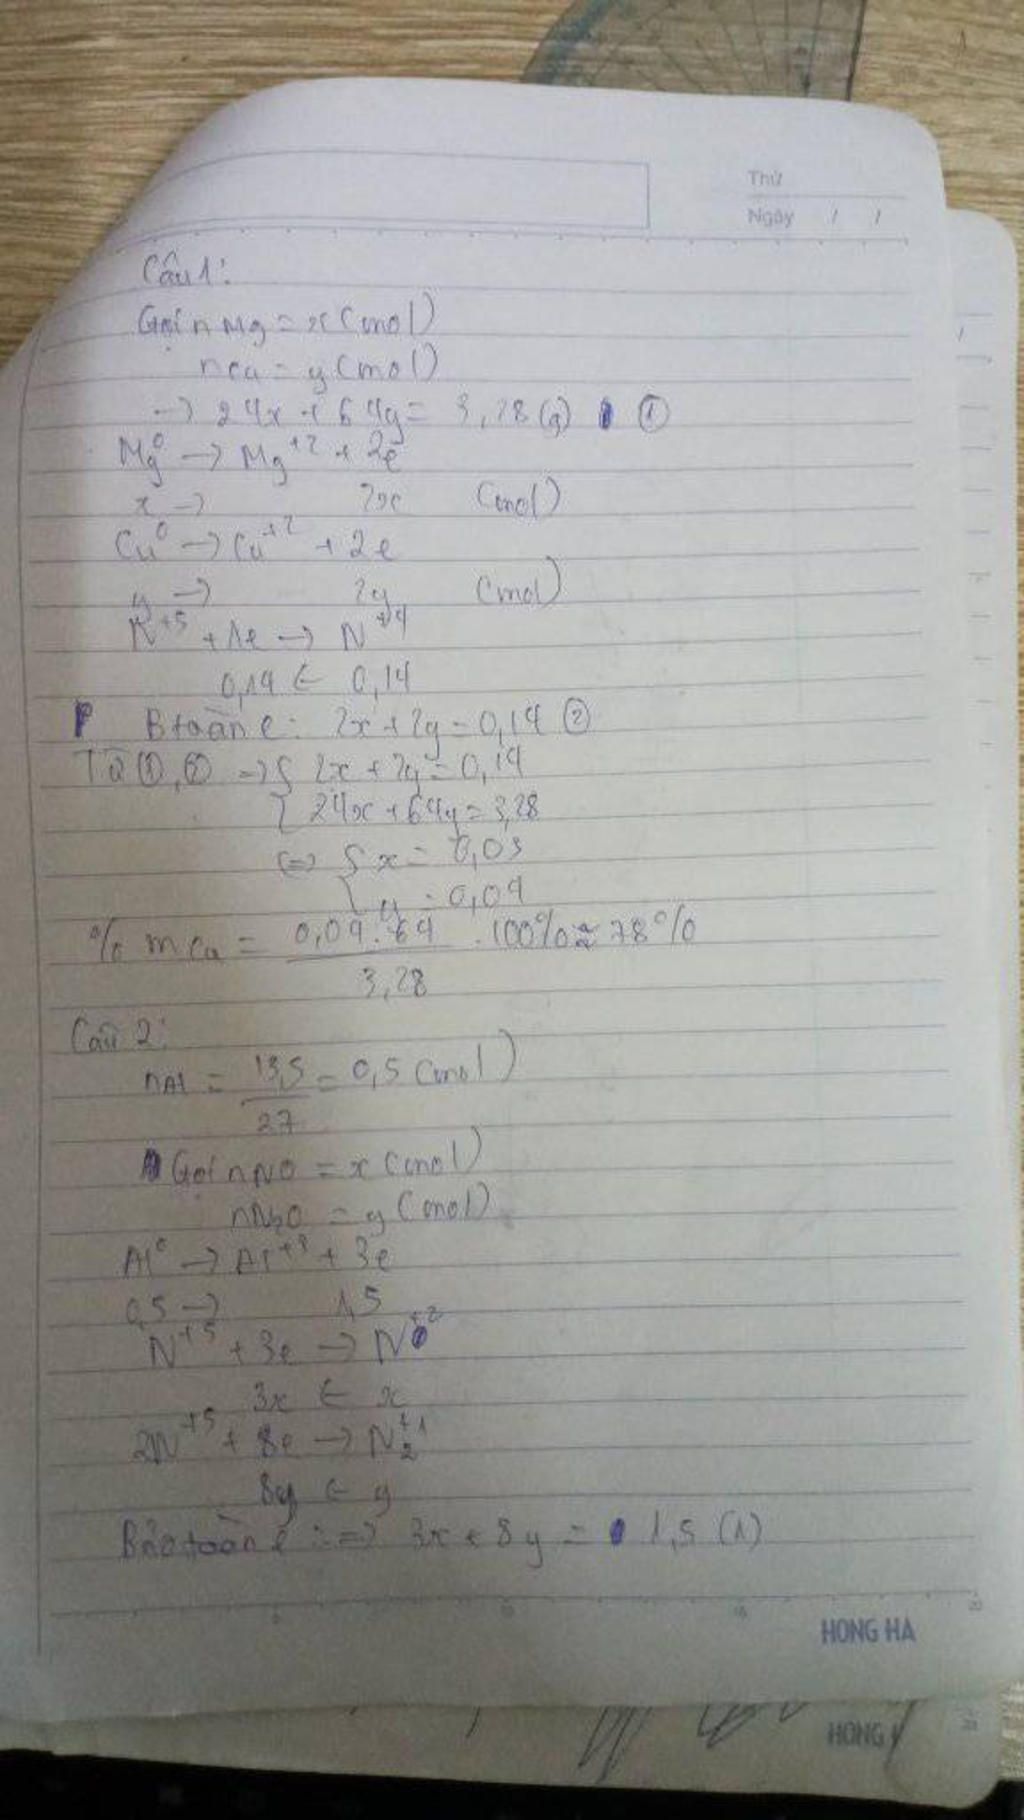 Thứ
Ngày / /
Câu 1:
Gọi nMg = x (mol)
nCu = y (mol)
→ 24x + 64y = 3,28 (g) ①
Mg⁰ → Mg⁺² + 2e
x → 2x (mol)
Cu⁰ → Cu⁺² + 2e
y → 2y (mol)
N⁺⁵ + 1e → N⁺⁴
0,14 ← 0,14
Btoàn e: 2x + 2y = 0,14 ②
Từ ①, ② => { 2x + 2y = 0,14
{ 24x + 64y = 3,28
<=> { x = 0,03
{ y = 0,04
% mCu = 0,04.64 / 3,28 . 100% ≈ 78%
Câu 2:
nAl = 13,5 / 27 = 0,5 (mol)
Gọi nNO = x (mol)
nN₂O = y (mol)
Al⁰ → Al⁺³ + 3e
0,5 → 1,5
N⁺⁵ + 3e → N⁺²
3x ← x
2N⁺⁵ + 8e → N₂⁺¹
8y ← y
Bảo toàn e: => 3x + 8y = 1,5 (1)
5 10 15 20
HONG HA
HONG